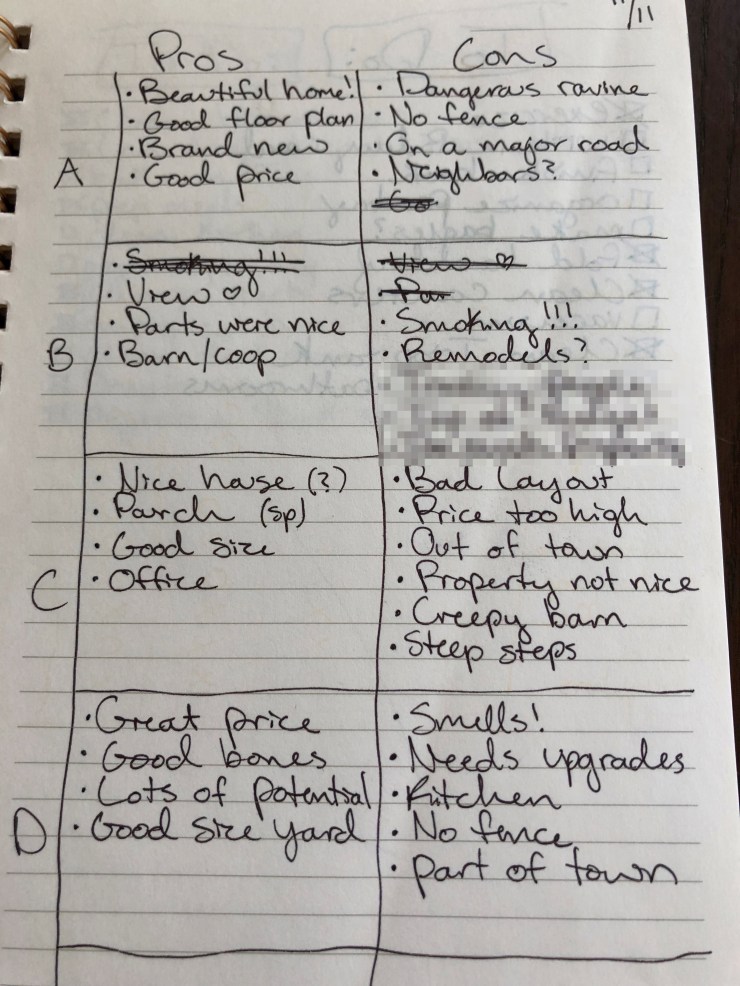 "/11
Pros Cons
A
• Beautiful home!
• Good floor plan
• Brand new
• Good price
• Dangerous ravine
• No fence
• On a major road
• Neighbors?
Go
B
• Smoking!!!
• View ♡
• Parts were nice
• Barn/coop
• View ♡
• Par
• Smoking!!!
• Remodels?
C
• Nice house (?)
• Porch (sp)
• Good size
• Office
• Bad layout
• Price too high
• Out of town
• Property not nice
• Creepy barn
• Steep steps
D
• Great price
• Good bones
• Lots of potential
• Good size yard
• Smells!
• Needs upgrades
• Kitchen
• No fence
• part of town